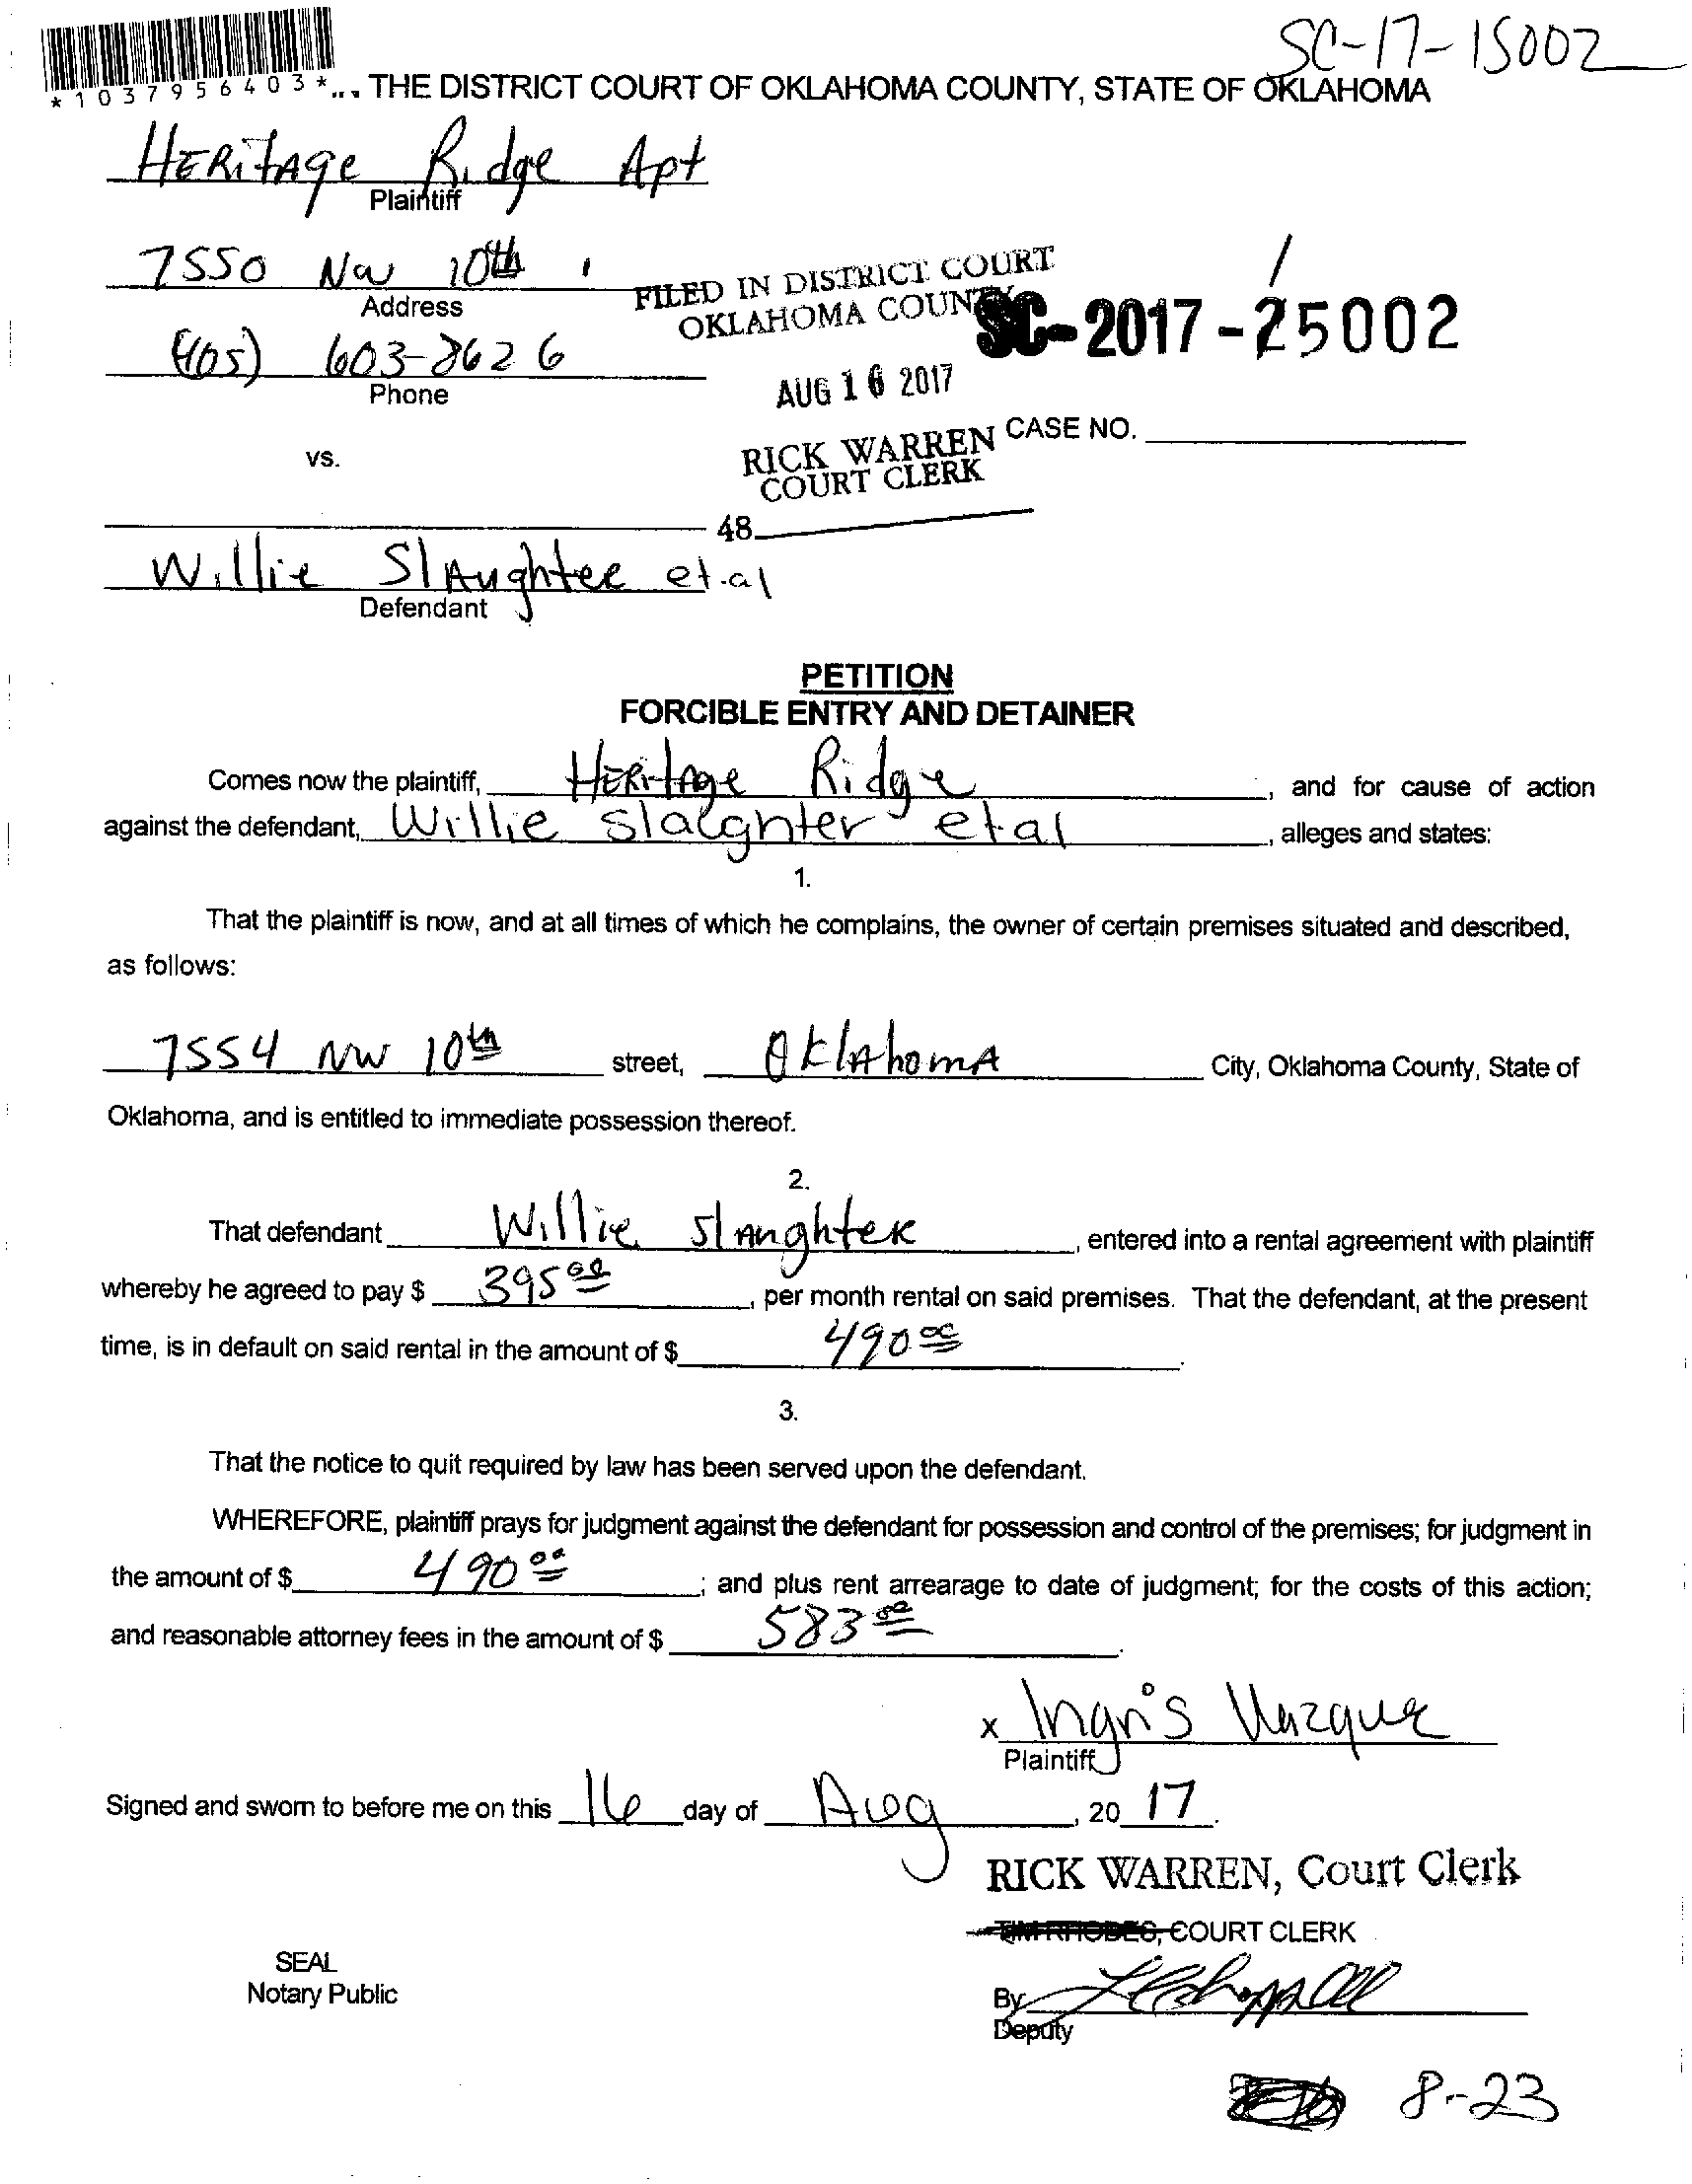 SC-17-15002
*1037956403*... THE DISTRICT COURT OF OKLAHOMA COUNTY, STATE OF OKLAHOMA
HERitAge Ridge Apt
Plaintiff
7550 NW 10th
Address
FILED IN DISTRICT COURT
OKLAHOMA COUNTY
SC-2017-25002
1
(405) 603-8626
Phone
AUG 16 2017
RICK WARREN
COURT CLERK
CASE NO.
vs.
48
Willie SlAughter et.al
Defendant
PETITION
FORCIBLE ENTRY AND DETAINER
Comes now the plaintiff, HERitAge Ridge, and for cause of action
against the defendant, Willie Slaughter et al, alleges and states:
1.
That the plaintiff is now, and at all times of which he complains, the owner of certain premises situated and described,
as follows:
7554 NW 10th street, OklAhomA City, Oklahoma County, State of
Oklahoma, and is entitled to immediate possession thereof.
2.
That defendant Willie SlAughter, entered into a rental agreement with plaintiff
whereby he agreed to pay $ 395 00, per month rental on said premises. That the defendant, at the present
time, is in default on said rental in the amount of $ 490 00.
3.
That the notice to quit required by law has been served upon the defendant.
WHEREFORE, plaintiff prays for judgment against the defendant for possession and control of the premises; for judgment in
the amount of $ 490 00; and plus rent arrearage to date of judgment; for the costs of this action;
and reasonable attorney fees in the amount of $ 583 00.
x Ingris Vazquez
Plaintiff
Signed and sworn to before me on this 16 day of Aug, 20 17.
RICK WARREN, Court Clerk
TIM RHODES, COURT CLERK
SEAL
Notary Public
By
Deputy
8-23